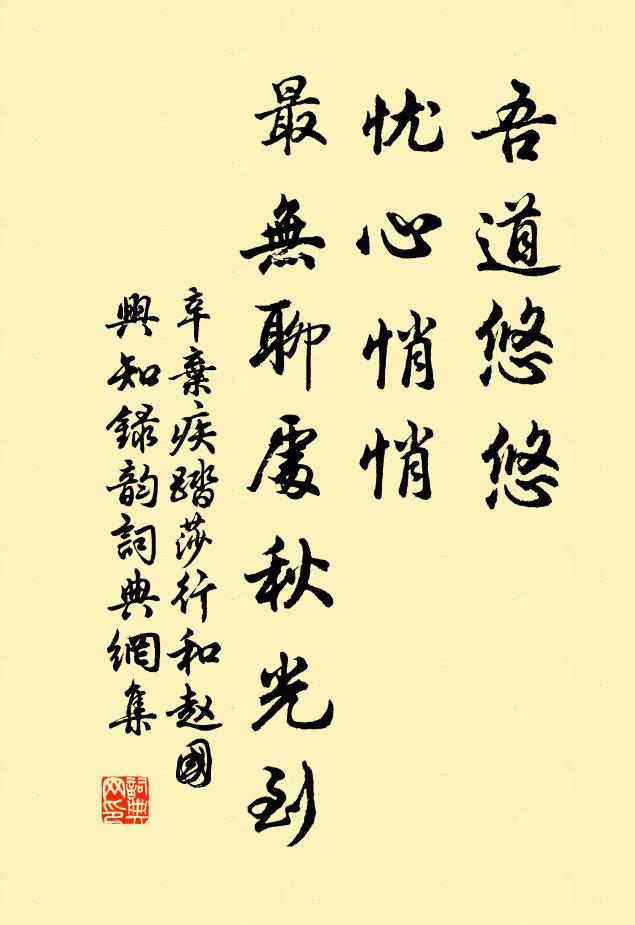 吾道悠悠
忧心悄悄
最無聊處秋光到
辛棄疾踏莎行和赵國
興知録韵詞典網集
詞典
网印